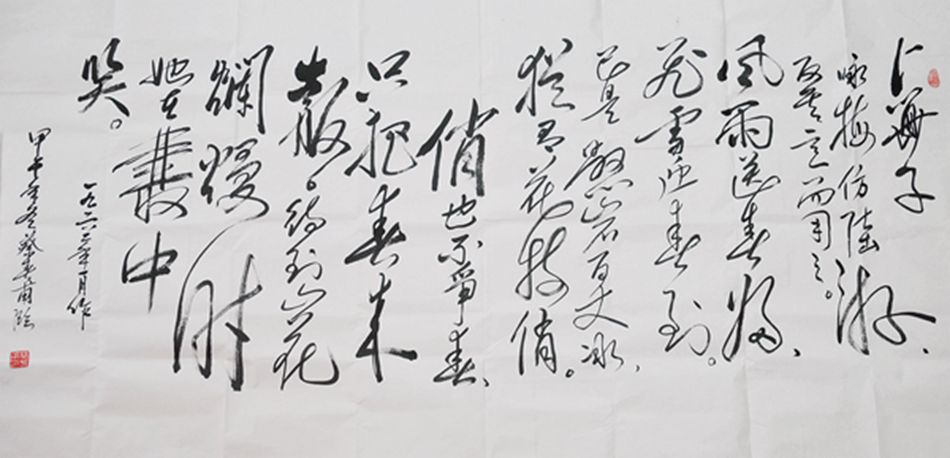 卜算子
咏梅仿陆游、
反其意而用之。
风雨送春归、
飞雪迎春到。
已是悬崖百丈冰、
犹有花枝俏。
俏也不争春、
只把春来
报。待到山花
爛熳时
她在叢中
笑。
一九六二年 月作
甲午年冬